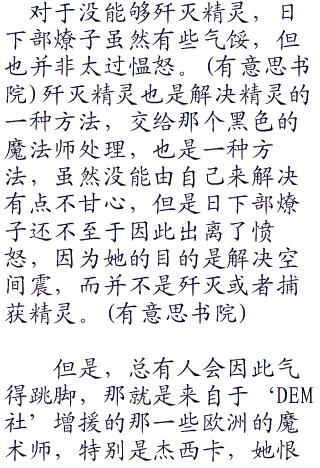 对于没能够歼灭精灵，日
下部燎子虽然有些气馁，但
也并非太过愠怒。(有意思书
院)歼灭精灵也是解决精灵的
一种方法，交给那个黑色的
魔法师处理，也是一种方
法，虽然没能由自己来解决
有点不甘心，但是日下部燎
子还不至于因此出离了愤
怒，因为她的目的是解决空
间震，而并不是歼灭或者捕
获精灵。(有意思书院)
但是，总有人会因此气
得跳脚，那就是来自于‘DEM
社’增援的那一些欧洲的魔
术师，特别是杰西卡，她恨